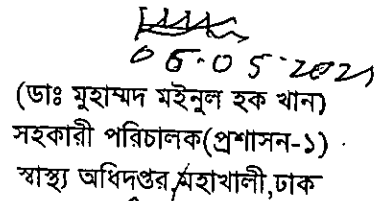 06.05.2021
(ডাঃ মুহাম্মদ মইনুল হক খান)
সহকারী পরিচালক(প্রশাসন-১)
স্বাস্থ্য অধিদপ্তর,মহাখালী,ঢাক